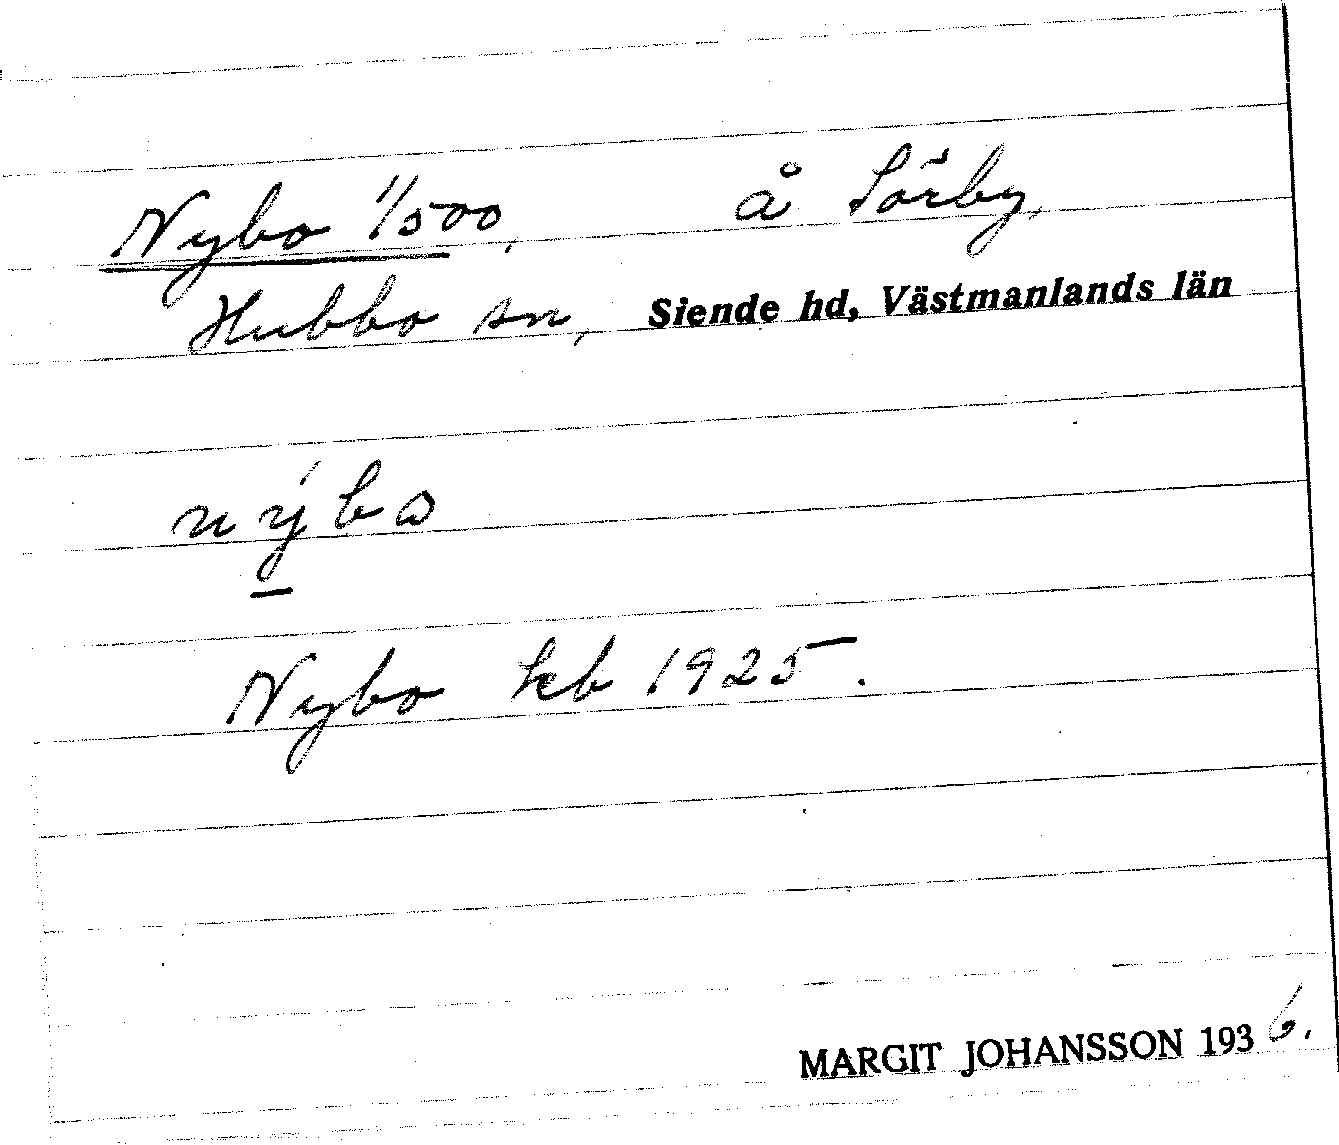 Nybo 1/500, å Sörby,
Hubbo sn, Siende hd, Västmanlands län
nýbo
Nybo kb 1925.
MARGIT JOHANSSON 1936.